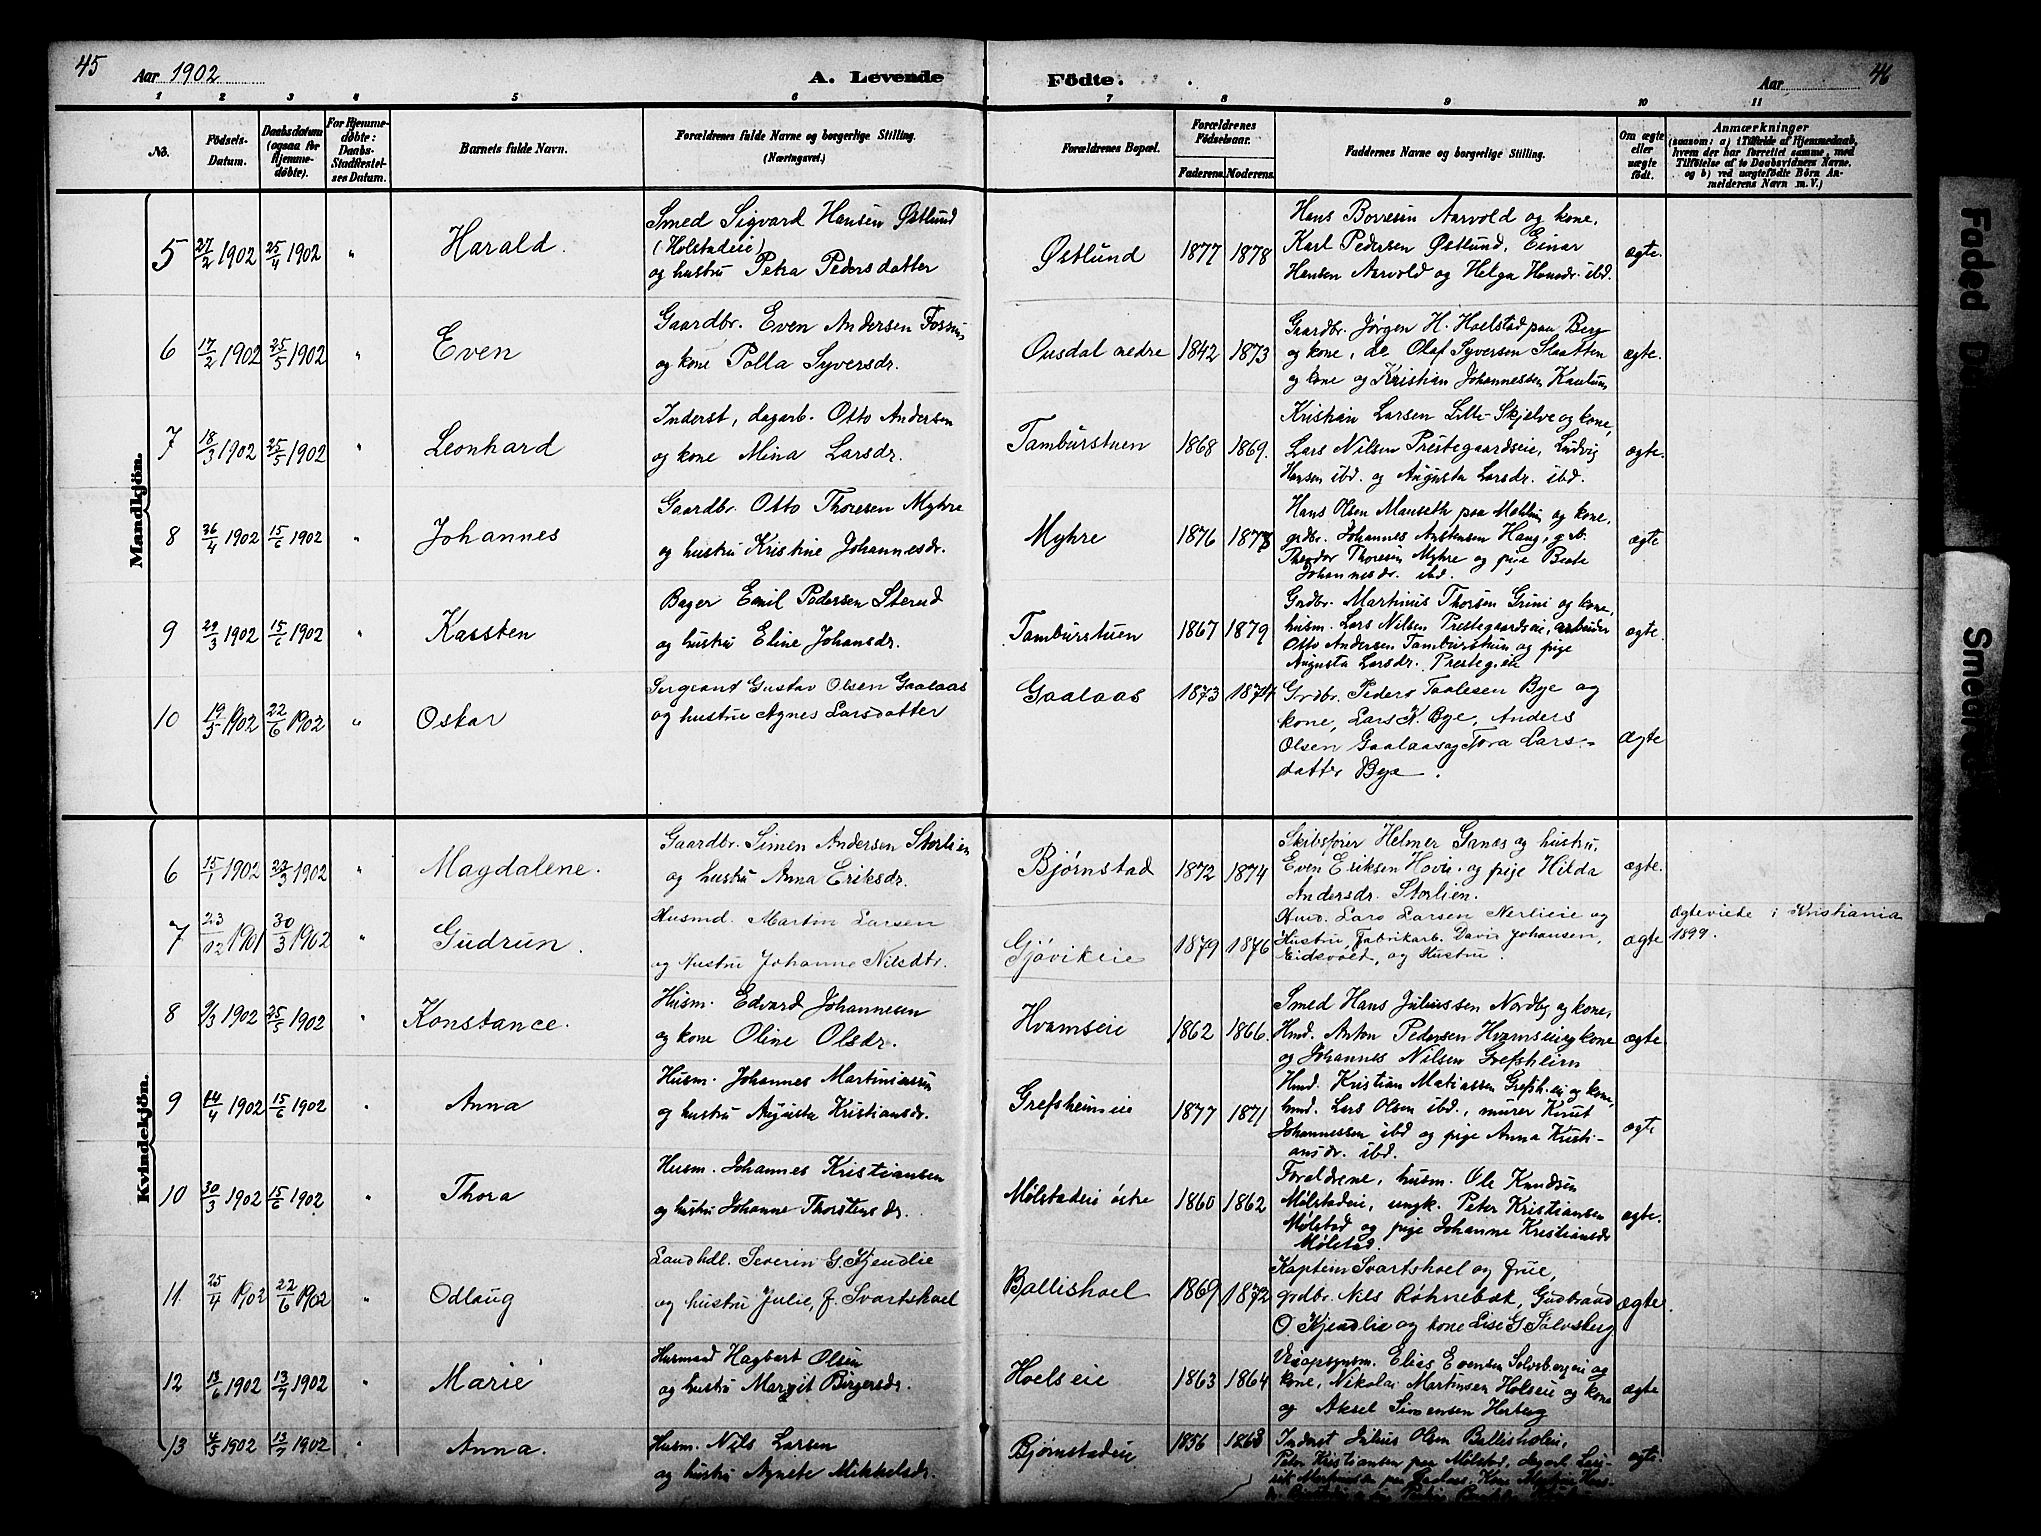 45
Aar 1902
A. Levende
Födte.
Aar
46
1 2 3 4 5 6 7 8 9 10 11
No.
Födsels-
Datum.
Daabsdatum
(ogsaa for
Hjemme-
döbte).
For Hjemme-
döbte:
Daabs-
Stadfæstel-
ses Datum.
Barnets fulde Navn.
Forældrenes fulde Navne og borgerlige Stilling.
(Næringsvei.)
Forældrenes Bopæl.
Forældrenes
Födselsaar.
Faderens. Moderens.
Faddernes Navne og borgerlige Stilling.
Om ægte
eller
uægte
födt.
Anmærkninger
(saasom: a) i Tilfælde af Hjemmedaab,
hvem der har forrettet samme, med
Tilföielse af to Daabsvidners Navne,
og b) ved uægtefödte Börn An-
melderens Navn m. V.)
Mandkjön.
5 27/2 1902 25/4 1902 " Harald.
Smed Sigvard Hansen Østlund
(Holstadeie)
og hustru Petra Pedersdatter
Østlund 1877 1878
Hans Borresen Aarvold og kone,
Karl Pedersen Østlund, Einar
Hansen Aarvold og Helga Hansdr. ibd.
ægte.
6 17/2 1902 25/5 1902 " Even
Gaardbr. Even Andersen Fossum
og kone Polla Syversdr.
Ousdal nedre 1842 1873
Gaardbr. Jørgen H. Hoelstad paa Berg
og kone, do. Olaf Syversen Slaatten
og kone og Kristian Johannessen
ægte.
7 18/3 1902 25/5 1902 " Leonhard
Inderst, dagarb. Otto Andersen
og kone Mina Larsdr.
Tamburstuen 1868 1869.
Kristian Larsen Lille-Skjelve og kone,
Lars Nilsen Prestegaardseie, Ludvig
Hansen ibd. og Augusta Larsdr. ibd.
ægte.
8 26/4 1902 15/6 1902 " Johannes
Gaardbr. Otto Thoresen Myhre
og hustru Kristine Johannesdr.
Myhre 1876 1878
Hans Olsen Manseth paa og kone,
grdbr. Johannes Anstensen Haug, g.b.
Theodor Thoresen Myhre og pige Beate
Johannesdr. ibd.
ægte
9 29/3 1902 15/6 1902 " Karsten
Bager Emil Pedersen Sterud
og hustru Eline Johansdr.
Tamburstuen 1867 1879
Grdbr. Martinus Thorsen Grini og kone,
husm. Lars Nilsen Prestegaardseie, arbeider
Otto Andersen Tamburstuen og pige
Augusta Larsdr. Presteg.eie
ægte.
10 19/5 1902 22/6 1902 " Oskar
Sergeant Gustav Olsen Gaalaas
og hustru Agnes Larsdatter
Gaalaas 1873 1874
Grdbr. Peder Taalesen Bye og
kone, Lars K. Bye, Anders
Olsen Gaalaas og Tora Lars-
datter Bye.
Ægte
Kvindekjön.
6 15/1 1902 23/3 1902 " Magdalene.
Gaardbr. Simen Andersen Storlien
og hustru Anna Eriksdr.
Bjørnstad 1872 1874
Skibsfører Helmer Ganæs og hustru,
Even Eriksen Hovi. og pige Hilda
Andersdr. Storlien.
ægte.
7 23/12 1901 30/3 1902 " Gudrun.
Husmd. Martin Larsen
og Hustru Johanne Nilsdtr.
Gjøvikeie 1879 1876
Hmd. Lars Larsen Nerlieie og
Hustru, Fabrikarb. David Johansen,
Eidsvold, og Hustru.
ægte
Ægteviede i Kristiania
1899.
8 9/3 1902 25/5 1902 " Konstance.
Husm. Edvard Johannesen
og kone Oline Olsdr.
Hvamseie 1862 1866.
Smed Hans Juliussen Nordby og kone,
Hmd. Anton Pedersen Hvamseie og kone
og Johannes Nilsen Grefsheim
ægte.
9 14/4 1902 15/6 1902 " Anna
Husm. Johannes Martiniussen
og hustru Augusta Kristiansdr.
Grefsheimeie 1877 1871
Hmd. Kristian Matiassen Grefsh.eie og kone,
hmd. Lars Olsen ibd., murer Knut
Johannessen ibd og pige Anna Kristi-
ansdr. ibd.
ægte
10 30/3 1902 15/6 1902 " Thora
Husm. Johannes Kristiansen
og hustru Johanne Thorstensdr.
Mølstadeie østre 1860 1862
Forældrene, husm. Ole Knudsen
Mølstadeie, ungk. Peter Kristiansen
Mølstad og pige Johanne Kristiansdr
Mølstad.
ægte.
11 25/4 1902 22/6 1902 " Odlaug
Landhdl. Severin G. Kjendlie
og hustru Julie, f. Svartshoel
Ballishoel 1869 1872
Kaptein Svartshoel og frue,
grdbr. Nils Røhnebæk, Gudbrand
O. Kjendlie og kone Lise G. Sølvsberg
ægte.
12 13/6 1902 13/7 1902 " Marie
Husmand Hagbart Olsen
og hustru Margit Birgersdr.
Hoelseie 1863 1864
Veiopsynsm. Elias Evensen Solvsbergeie og
kone, Nikolai Martinsen Holseie og kone
og Aksel Simensen Herberg
ægte
13 4/5 1902 13/7 1902 " Anna.
Husm. Nils Larsen
og hustru Agnete Mikkelsdr.
Bjørnstadeie 1856 1863
Inderst Julius Olsen Ballisholeie,
Peter Kristiansen paa Mølstad, dagarb. Lars
ægte.
Faded